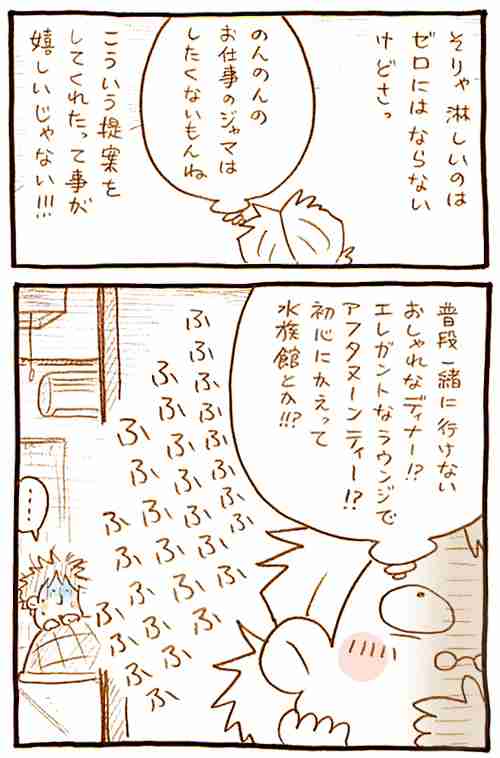 そりゃ淋しいのは
ゼロにはならない
けどさっ
のんのんの
お仕事のジャマは
したくないもんね
こういう提案を
してくれたって事が
嬉しいじゃない!!!
普段一緒に行けない
おしゃれなディナー!?
エレガントなラウンジで
アフタヌーンティー!?
初心にかえって
水族館とか!!?
ふふふふふふふ
ふふふふふふふ
ふふふふふふふ
ふふふふふふ
ふふふ
……